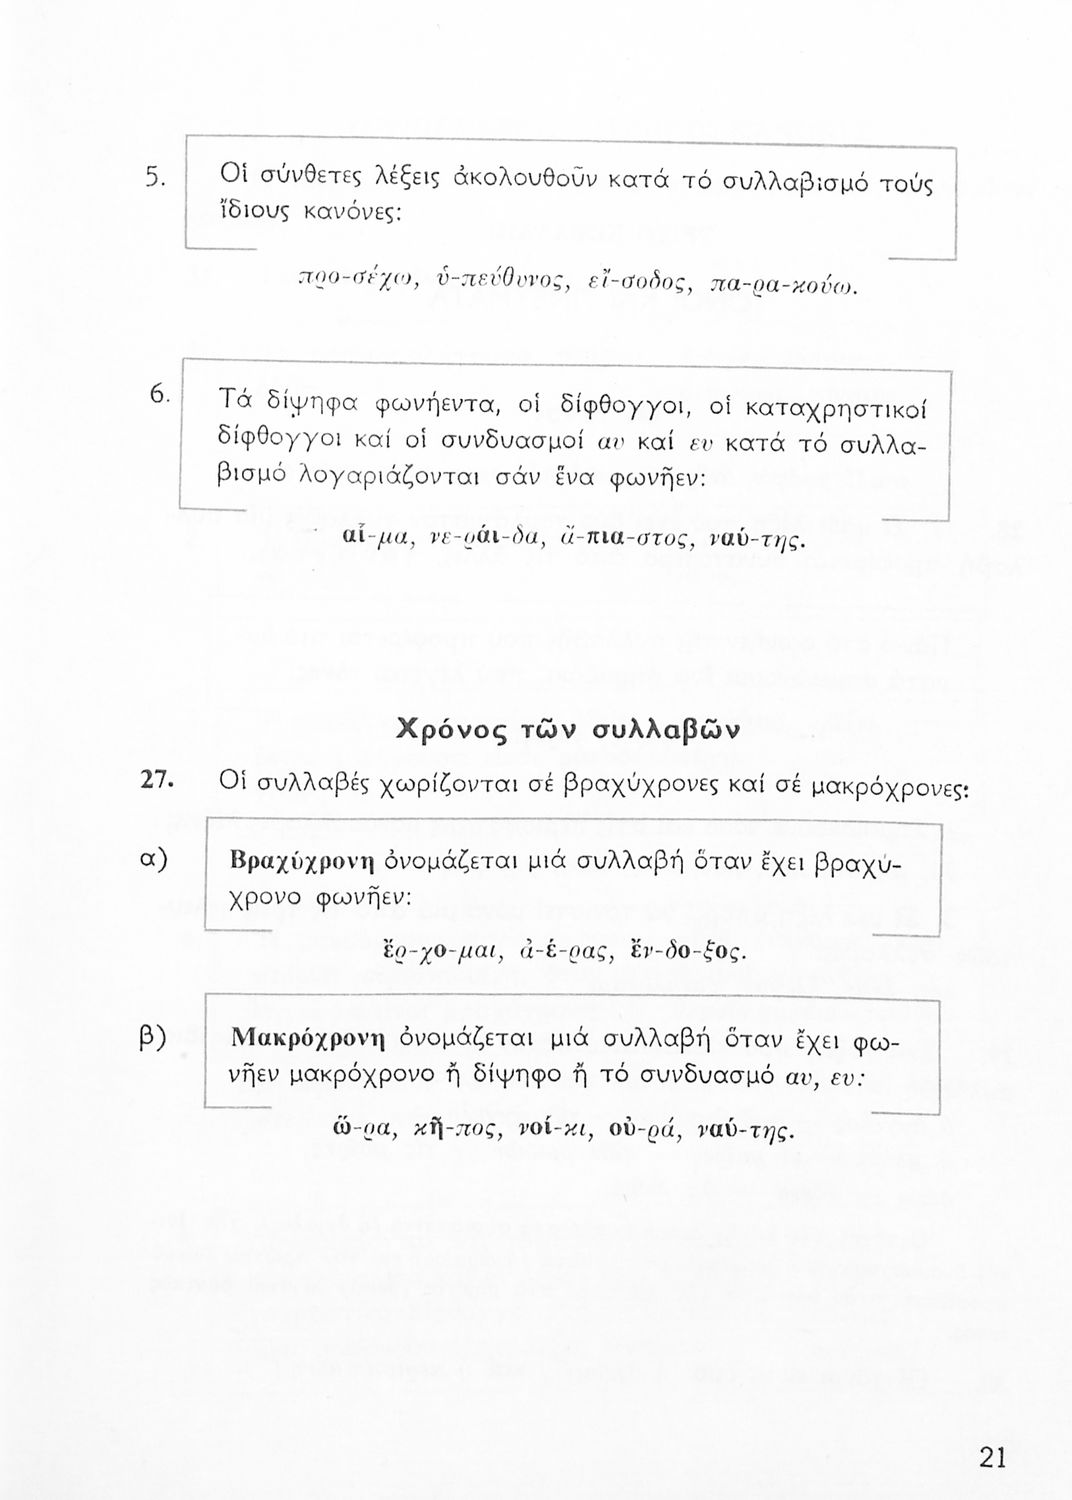 5. Οἱ σύνθετες λέξεις ἀκολουθοῦν κατά τό συλλαβισμό τούς
ἴδιους κανόνες:
προ-σέχω, ὑ-πεύθυνος, εἴ-σοδος, πα-ρα-κούω.
6. Τά δίψηφα φωνήεντα, οἱ δίφθογγοι, οἱ καταχρηστικοί
δίφθογγοι καί οἱ συνδυασμοί αυ καί ευ κατά τό συλλα-
βισμό λογαριάζονται σάν ἕνα φωνῆεν:
αἷ-μα, νε-ράι-δα, ἄ-πια-στος, ναύ-της.
Χρόνος τῶν συλλαβῶν
27. Οἱ συλλαβές χωρίζονται σέ βραχύχρονες καί σέ μακρόχρονες:
α) Βραχύχρονη ὀνομάζεται μιά συλλαβή ὅταν ἔχει βραχύ-
χρονο φωνῆεν:
ἔρ-χο-μαι, ἀ-έ-ρας, ἔν-δο-ξος.
β) Μακρόχρονη ὀνομάζεται μιά συλλαβή ὅταν ἔχει φω-
νῆεν μακρόχρονο ἤ δίψηφο ἤ τό συνδυασμό αυ, ευ:
ὥ-ρα, κῆ-πος, νοί-κι, οὐ-ρά, ναύ-της.
21